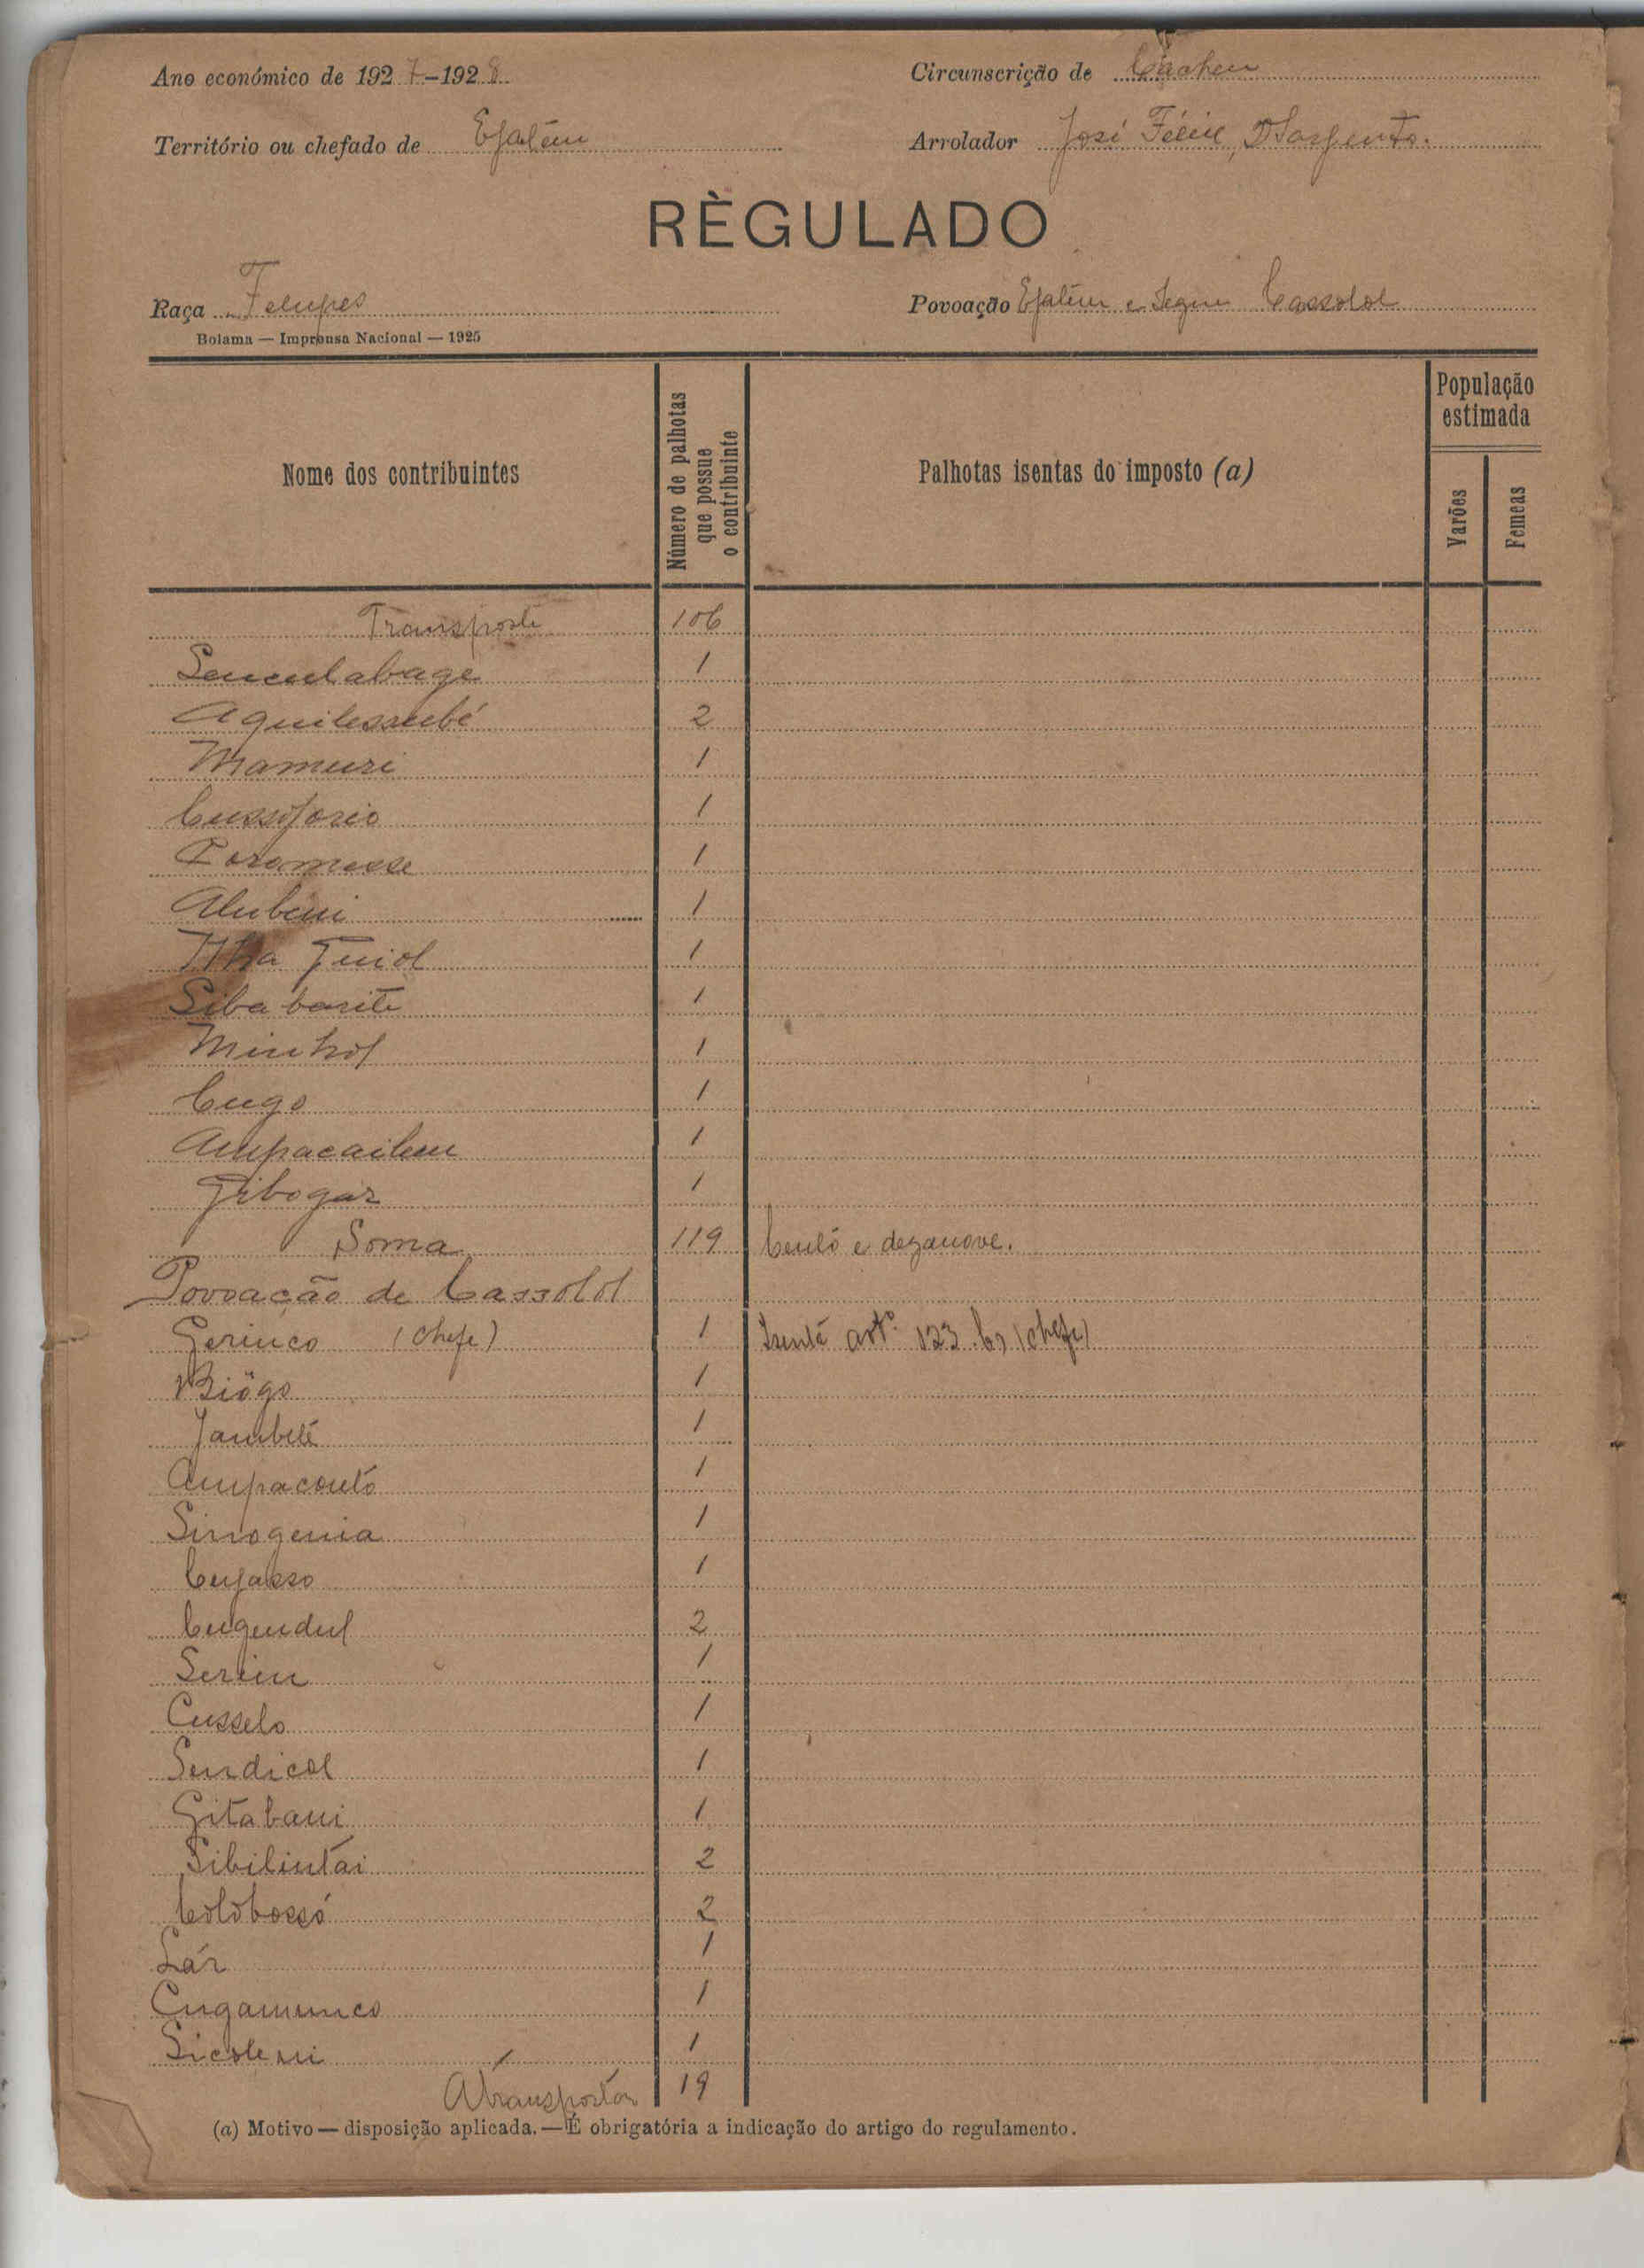 Ano económico de 1927-1928 Circunscrição de Cacheu
Território ou chefado de Efalém Arrolador José Félix, Sargento.
RÈGULADO
Raça Felupes Povoação Efalém e Segue Cassolol
Bolama — Imprensa Nacional — 1925
Nome dos contribuintes Número de palhotas que possue o contribuinte Palhotas isentas do imposto (a) População estimada
Varões Femeas
Transporte 106
Senculabage 1
Aquilessubé 2
Mamuri 1
Cussiforio 1
Poromesse 1
Alubeui 1
Quiol 1
Siba barite 1
Minhof 1
Cugo 1
Ampacailem 1
Gibogar 1
Soma 119 Cento e dezanove.
Povoação de Cassolol
Gerinco (Chefe) 1 Isento artº 123. b, (chefe)
Biögo 1
Jambelé 1
Ampacontó 1
Sinogenia 1
Cujasso 1
Cugendul 2
Serim 1
Cusselo 1
Sendicol 1
Gitabani 1
Sibilintai 2
Colobossó 2
Lár 1
Cugamunco 1
Sicoleni 1
A transportar 19
(a) Motivo — disposição aplicada. — É obrigatória a indicação do artigo do regulamento.